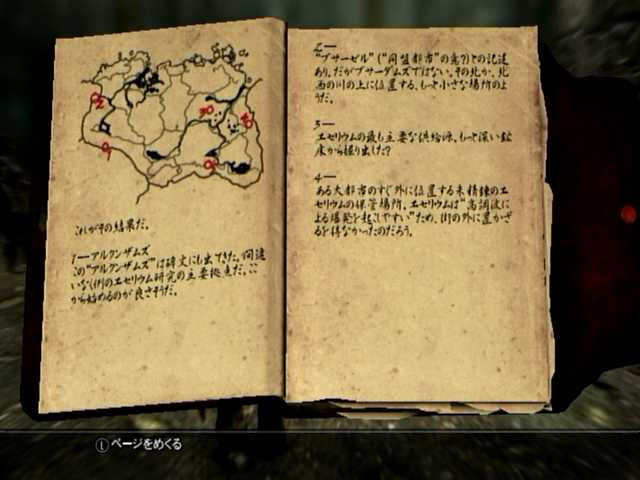 これがその結果だ。
1ーアルクンザムズ
この"アルクンザムズ"は碑文にも出てきた。間違
いなく例のエセリウム研究の主要拠点だ。ここ
から始めるのが良さそうだ。
2ー
"ブサーゼル"("同盟都市"の意?)との記述
あり。だがブサーダムズではない。その北か、北
西の川の上に位置する、もっと小さな場所のよ
うだ。
3ー
エセリウムの最も主要な供給源。もっと深い鉱
床から掘り出した?
4ー
ある大都市のすぐ外に位置する未精錬のエ
セリウムの保管場所。エセリウムは"高調波に
よる爆発を起こしやすい"ため、街の外に置かざ
るを得なかったのだろう。
Ⓛページをめくる